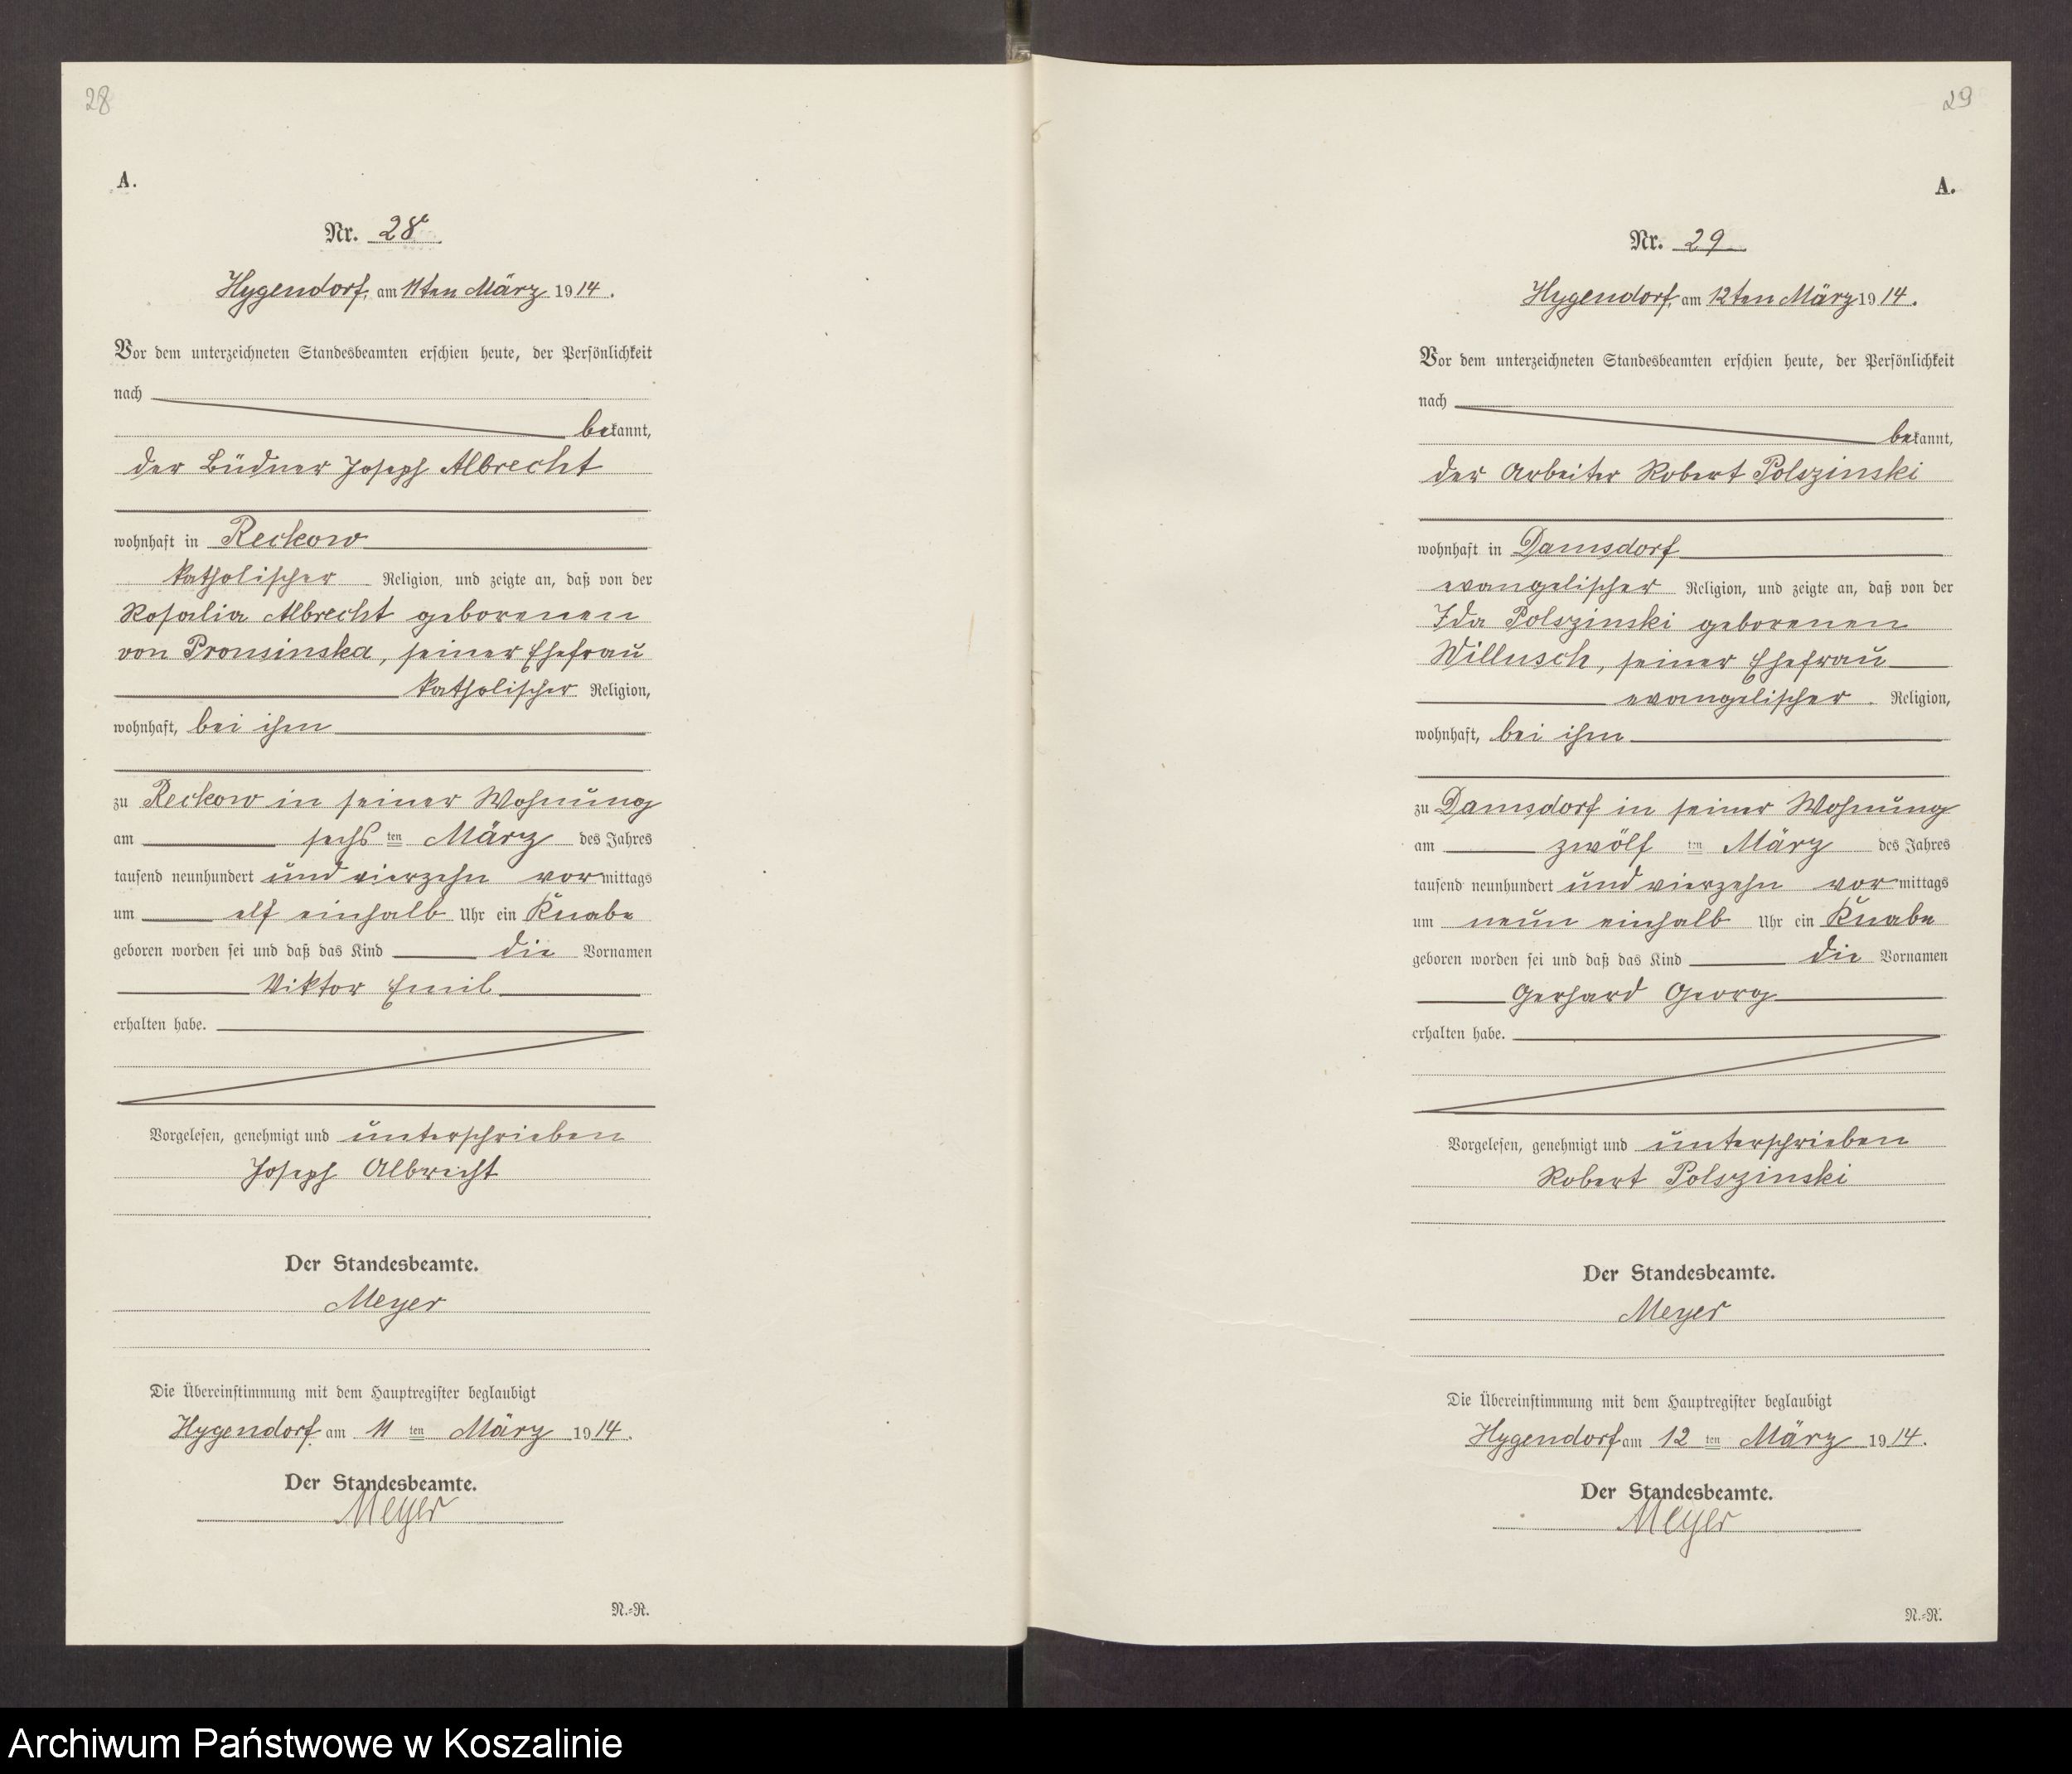 28
A.
Nr. 28
Hygendorf, am 11ten März 1914.
Vor dem unterzeichneten Standesbeamten erschien heute, der Persönlichkeit
nach
bekannt,
der Büdner Joseph Albrecht
wohnhaft in Reckow
katholischer Religion, und zeigte an, daß von der
Rosalia Albrecht geborenen
von Pronsinska, seiner Ehefrau
katholischer Religion,
wohnhaft, bei ihm
zu Reckow in seiner Wohnung
am sechs ten März des Jahres
tausend neunhundert und vierzehn vormittags
um elf einhalb Uhr ein Knabe
geboren worden sei und daß das Kind die Vornamen
Viktor Emil
erhalten habe.
Vorgelesen, genehmigt und unterschrieben
Joseph Albrecht
Der Standesbeamte.
Meyer
Die Übereinstimmung mit dem Hauptregister beglaubigt
Hygendorf am 11 ten März 1914.
Der Standesbeamte.
Meyer
N.-R.
29
A.
Nr. 29
Hygendorf, am 12ten März 1914.
Vor dem unterzeichneten Standesbeamten erschien heute, der Persönlichkeit
nach
bekannt,
der Arbeiter Robert Polszinski
wohnhaft in Damsdorf
evangelischer Religion, und zeigte an, daß von der
Ida Polszinski geborenen
Willusch, seiner Ehefrau
evangelischer Religion,
wohnhaft, bei ihm
zu Damsdorf in seiner Wohnung
am zwölf ten März des Jahres
tausend neunhundert und vierzehn vormittags
um neun einhalb Uhr ein Knabe
geboren worden sei und daß das Kind die Vornamen
Gerhard Georg
erhalten habe.
Vorgelesen, genehmigt und unterschrieben
Robert Polszinski
Der Standesbeamte.
Meyer
Die Übereinstimmung mit dem Hauptregister beglaubigt
Hygendorf am 12 ten März 1914.
Der Standesbeamte.
Meyer
N.-R.
Archiwum Państwowe w Koszalinie